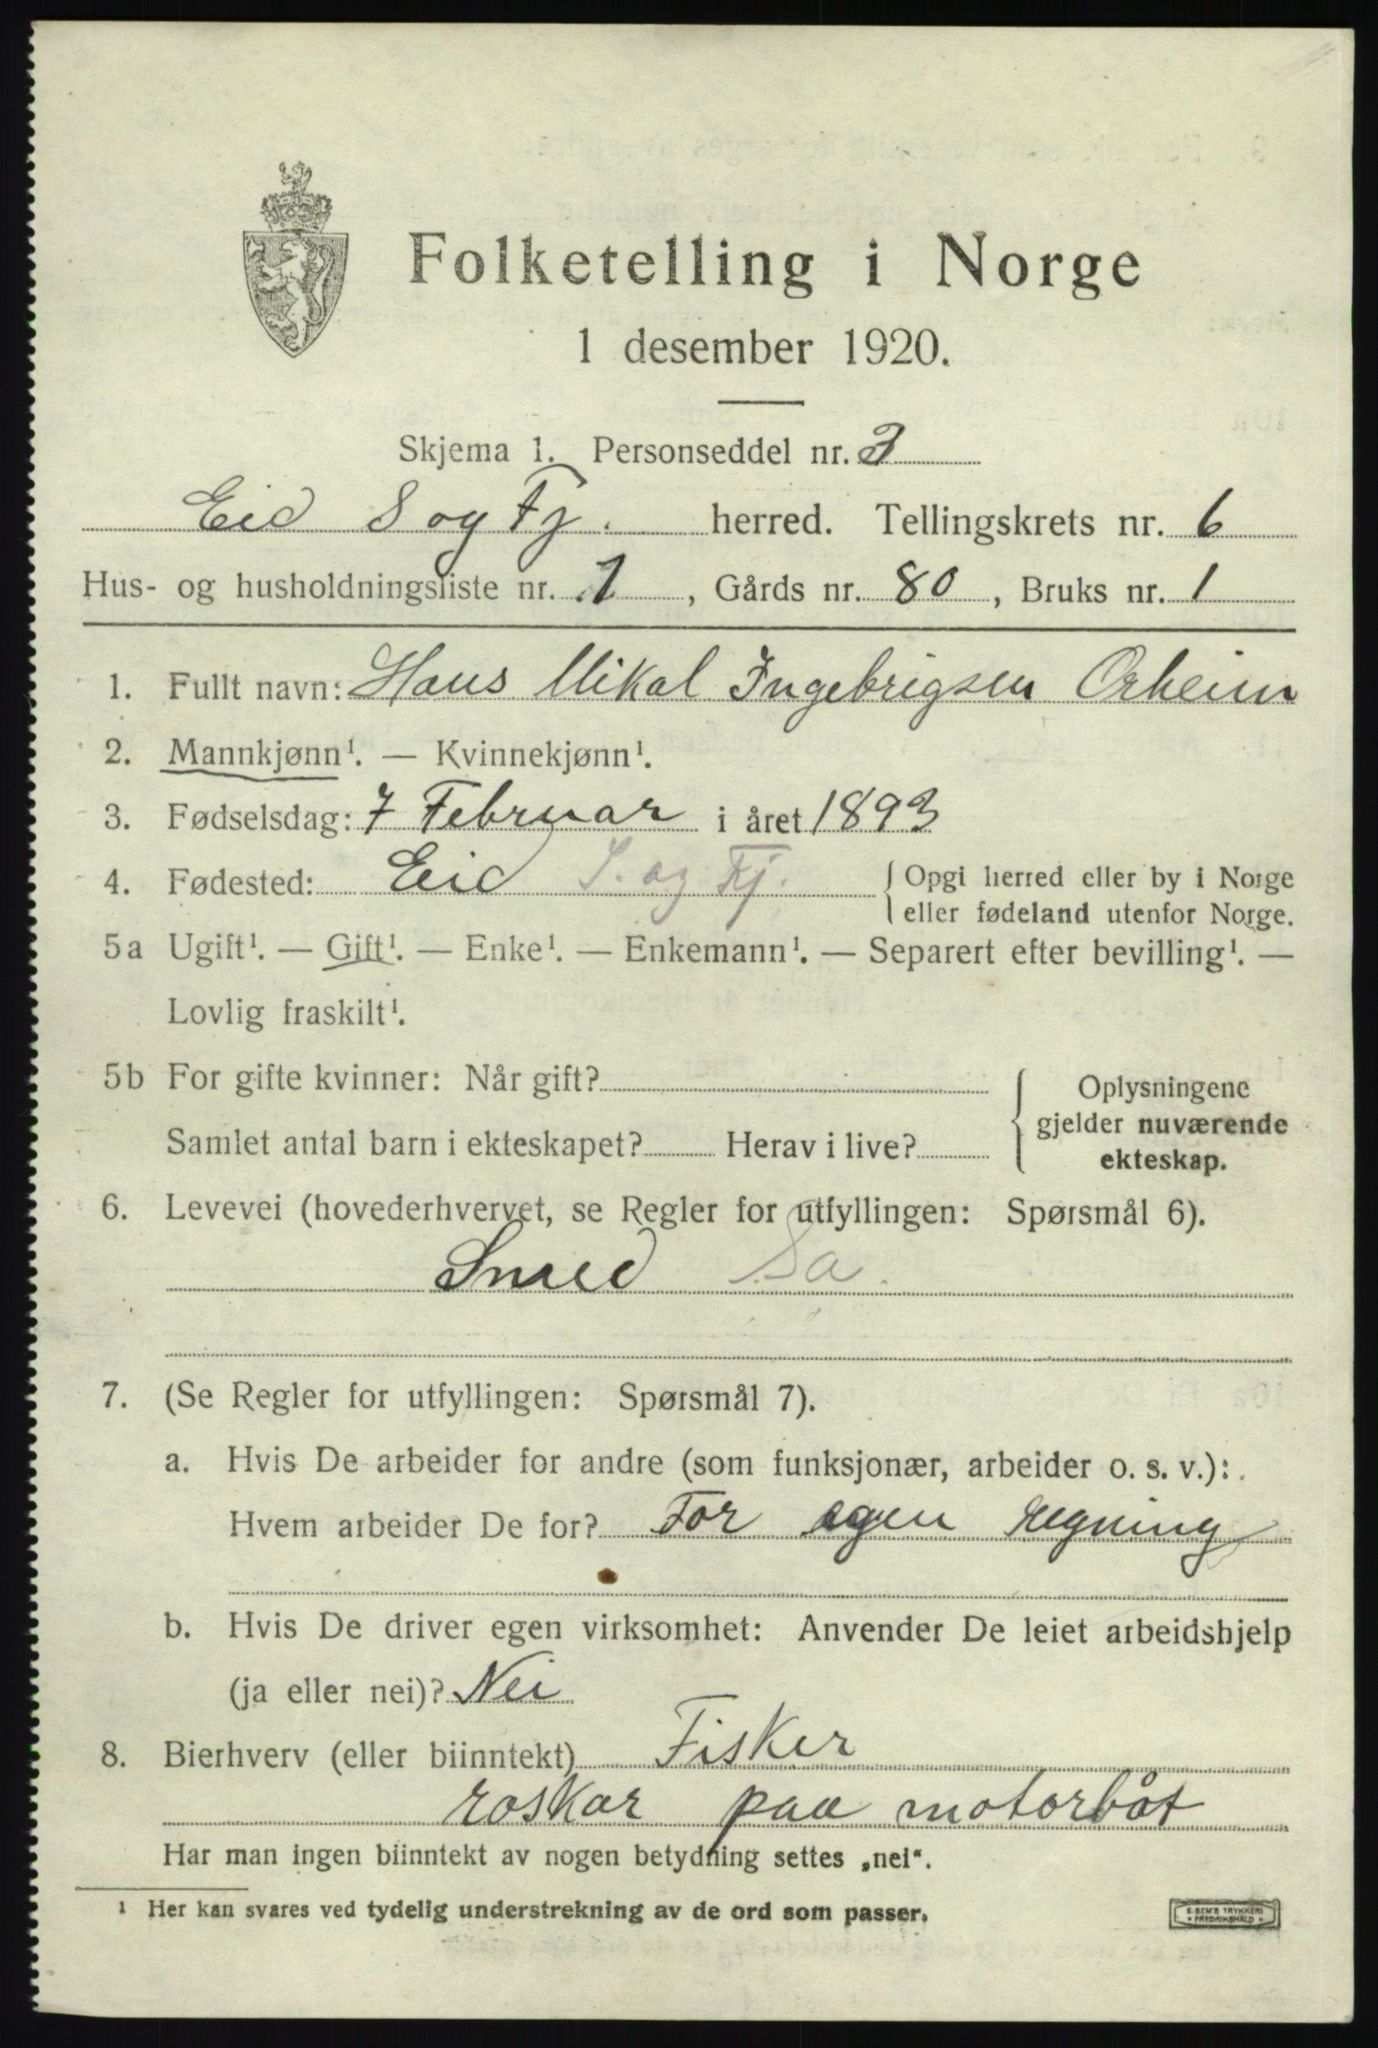 Folketelling i Norge
1 desember 1920.
Skjema 1. Personseddel nr. 3
Eid S og Fj. herred. Tellingskrets nr. 6
Hus- og husholdningsliste nr. 1, Gårds nr. 80, Bruks nr. 1
1. Fullt navn: Hans Mikal Ingebrigsen Orheim
2. Mannkjønn¹. — Kvinnekjønn¹.
3. Fødselsdag: 7 Februar i året 1893
4. Fødested: Eid S. og Fj. { Opgi herred eller by i Norge
eller fødeland utenfor Norge.
5a Ugift¹. — Gift¹. — Enke¹. — Enkemann¹. — Separert efter bevilling¹. —
Lovlig fraskilt¹.
5b For gifte kvinner: Når gift?
Samlet antal barn i ekteskapet? Herav i live?
{ Oplysningene
gjelder nuværende
ekteskap.
6. Levevei (hovederhvervet, se Regler for utfyllingen: Spørsmål 6).
Smed Sa.
7. (Se Regler for utfyllingen: Spørsmål 7).
a. Hvis De arbeider for andre (som funksjonær, arbeider o. s. v.):
Hvem arbeider De for? For egen regning
b. Hvis De driver egen virksomhet: Anvender De leiet arbeidshjelp
(ja eller nei)? Nei
8. Bierhverv (eller biinntekt) Fisker
roskar paa motorbåt
Har man ingen biinntekt av nogen betydning settes „nei“.
¹ Her kan svares ved tydelig understrekning av de ord som passer.
E. SEM'S TRYKKERI
FREDRIKSHALD